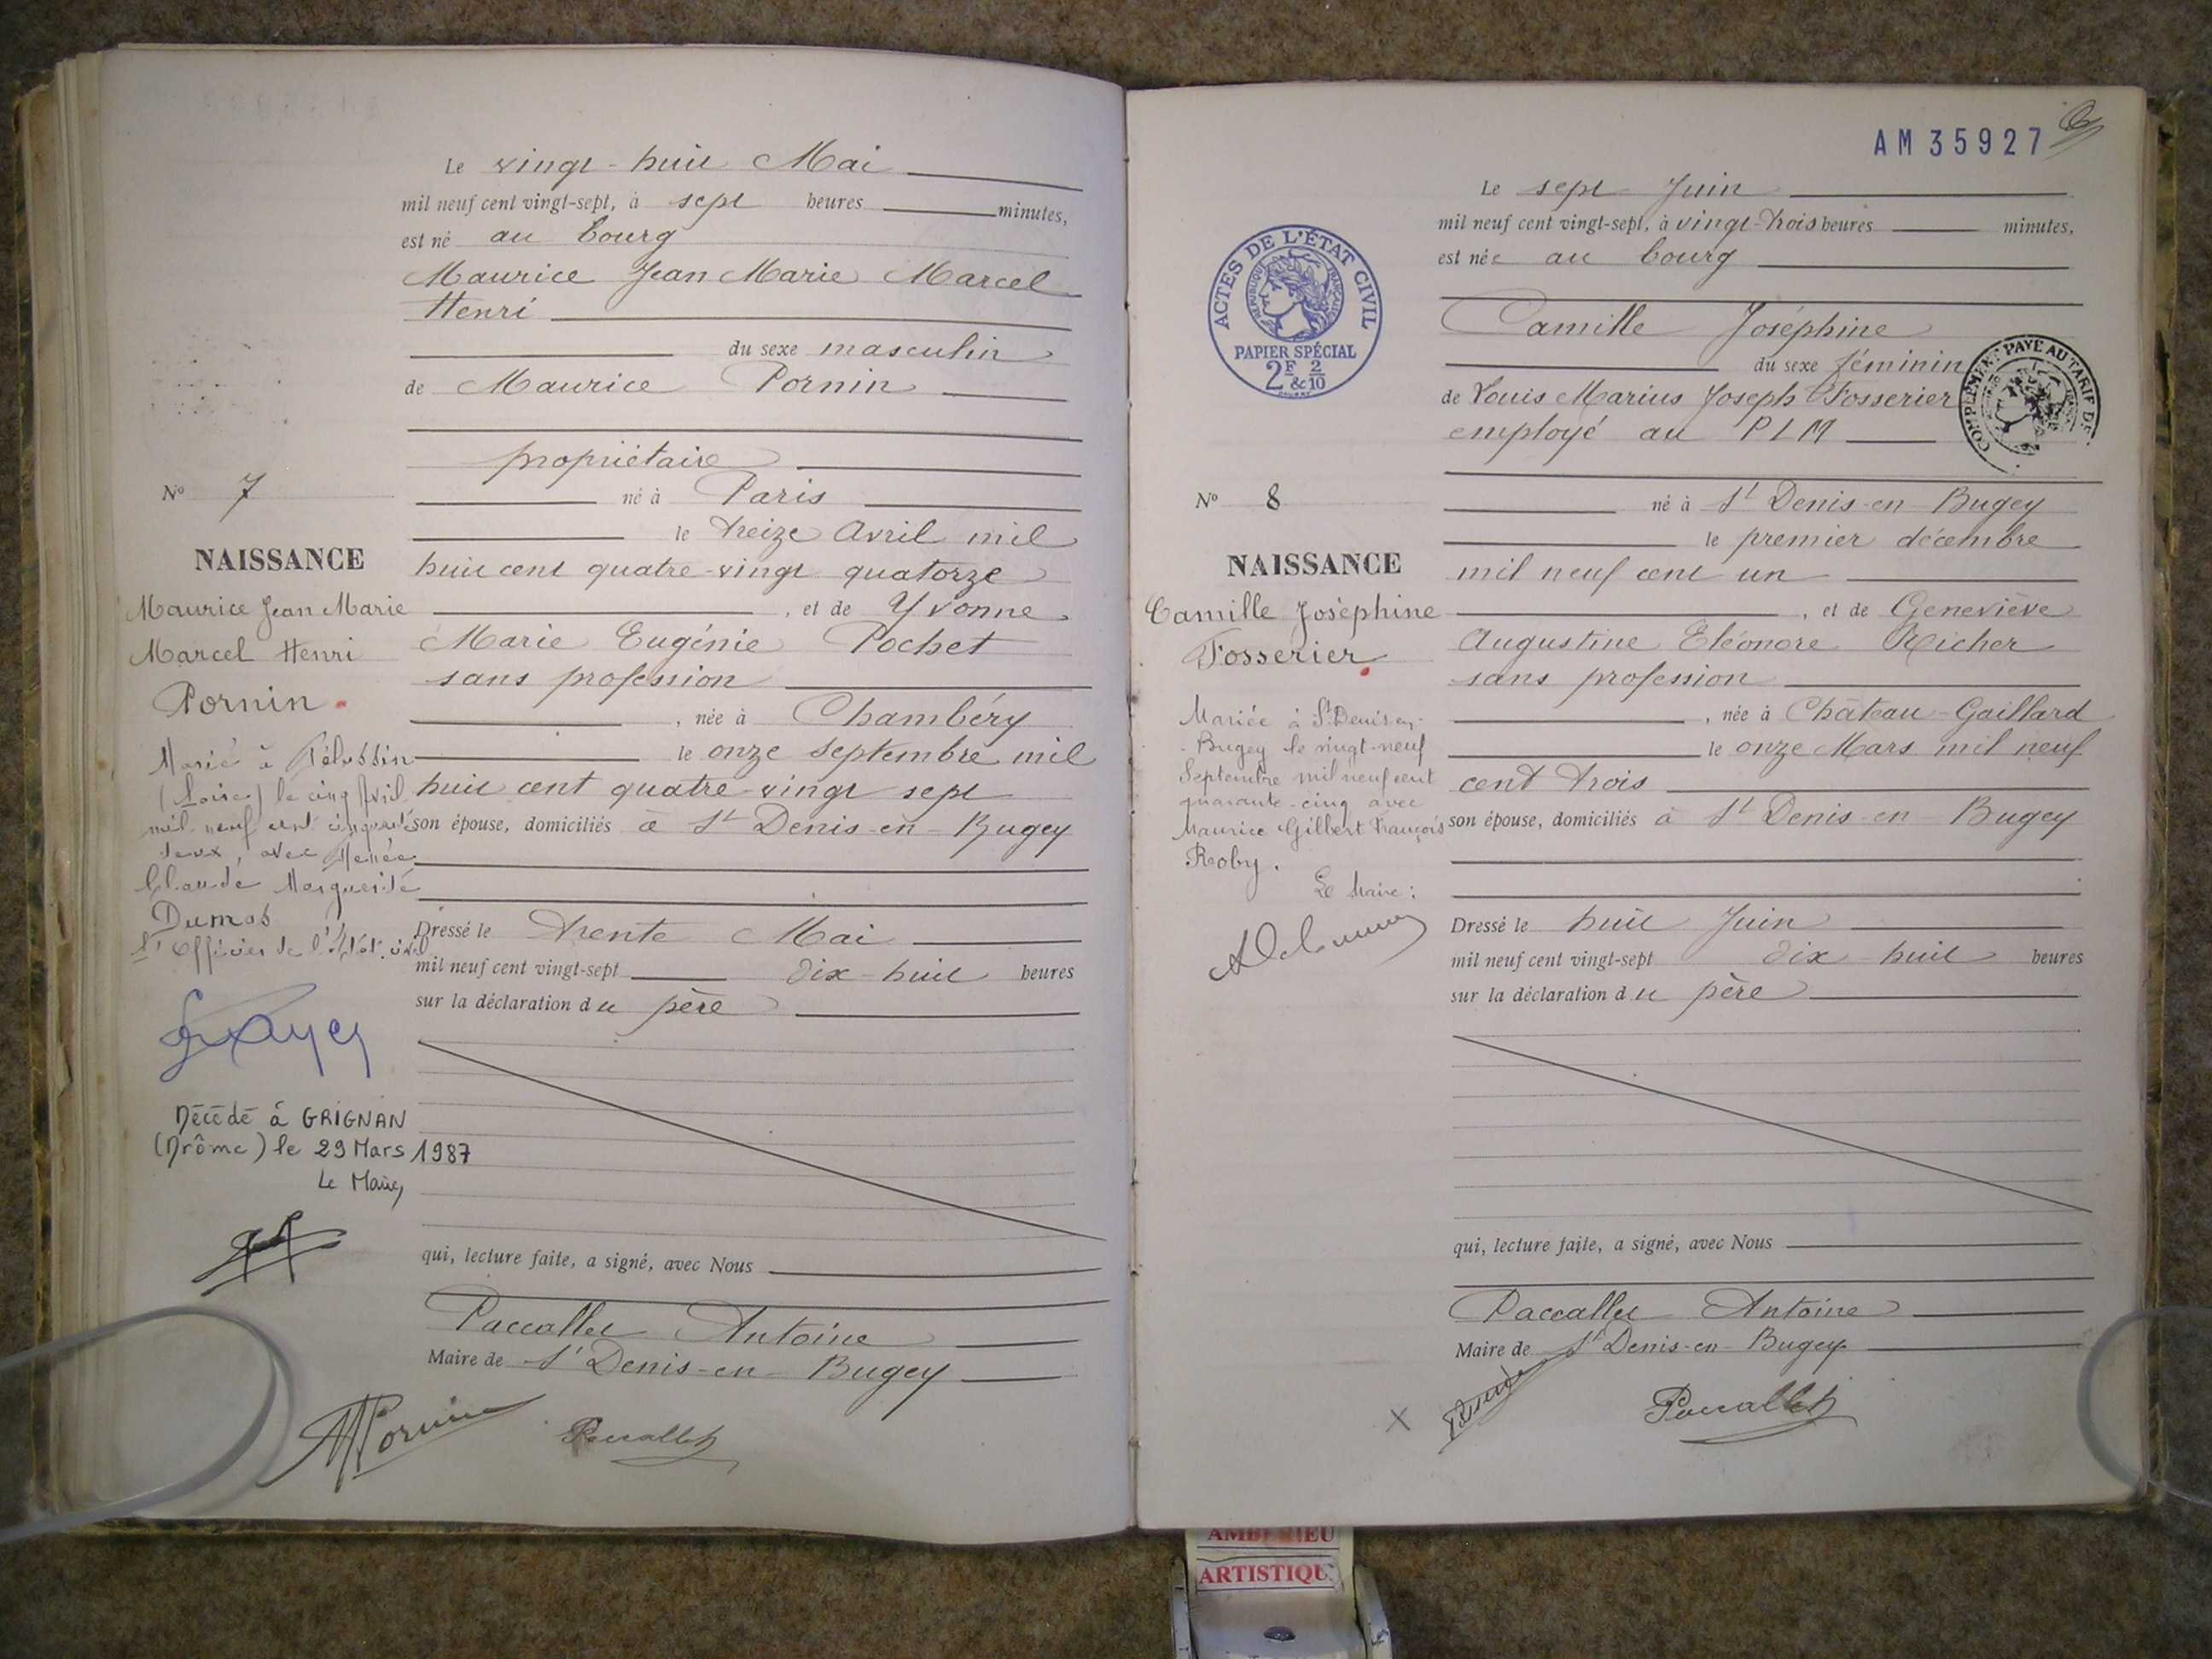 Le vingt-huit Mai
mil neuf cent vingt-sept, à sept heures minutes,
est né au bourg
Maurice Jean Marie Marcel
Henri
du sexe masculin
de Maurice Pornin
propriétaire
né à Paris
le treize Avril mil
huit cent quatre-vingt quatorze
, et de Yvonne
Marie Eugénie Pochet
sans profession
, née à Chambéry
le onze septembre mil
huit cent quatre-vingt sept
son épouse, domiciliés à St Denis-en-Bugey
Dressé le trente Mai
mil neuf cent vingt-sept dix-huit heures
sur la déclaration du père
qui, lecture faite, a signé, avec Nous
Paccallet Antoine
Maire de St Denis-en-Bugey
MPornin
Paccallet
No 7
NAISSANCE
Maurice Jean Marie
Marcel Henri
Pornin
Marié à Pélussin
(Loire) le cinq Avril
mil neuf cent cinquante
deux, avec Renée
Claude Marguerite
Dumas
L'Officier de l'Etat civil
Décédé à GRIGNAN
(Drôme) le 29 Mars 1987
Le Maire,
AM 35927
Le sept Juin
mil neuf cent vingt-sept, à vingt-trois heures minutes,
est née au bourg
Camille Joséphine
du sexe féminin
de Louis Marius Joseph Fosserier
employé au PLM
né à St Denis-en-Bugey
le premier décembre
mil neuf cent un
, et de Geneviève
Augustine Eléonore Richer
sans profession
, née à Château-Gaillard
le onze Mars mil neuf
cent trois
son épouse, domiciliés à St Denis-en-Bugey
Dressé le huit Juin
mil neuf cent vingt-sept dix-huit heures
sur la déclaration du père
qui, lecture faite, a signé, avec Nous
Paccallet Antoine
Maire de St Denis-en-Bugey
Paccallet
ACTES DE L'ÉTAT CIVIL
RÉPUBLIQUE FRANÇAISE
PAPIER SPÉCIAL
2F & 2/10
COMPLÉMENT PAYÉ AU TARIF DE
No 8
NAISSANCE
Camille Joséphine
Fosserier
Mariée à St Denis en-
Bugey le vingt-neuf
Septembre mil neuf cent
quarante-cinq avec
Maurice Gilbert François
Roby.
Le Maire :
X
AMBERIEU
ARTISTIQU